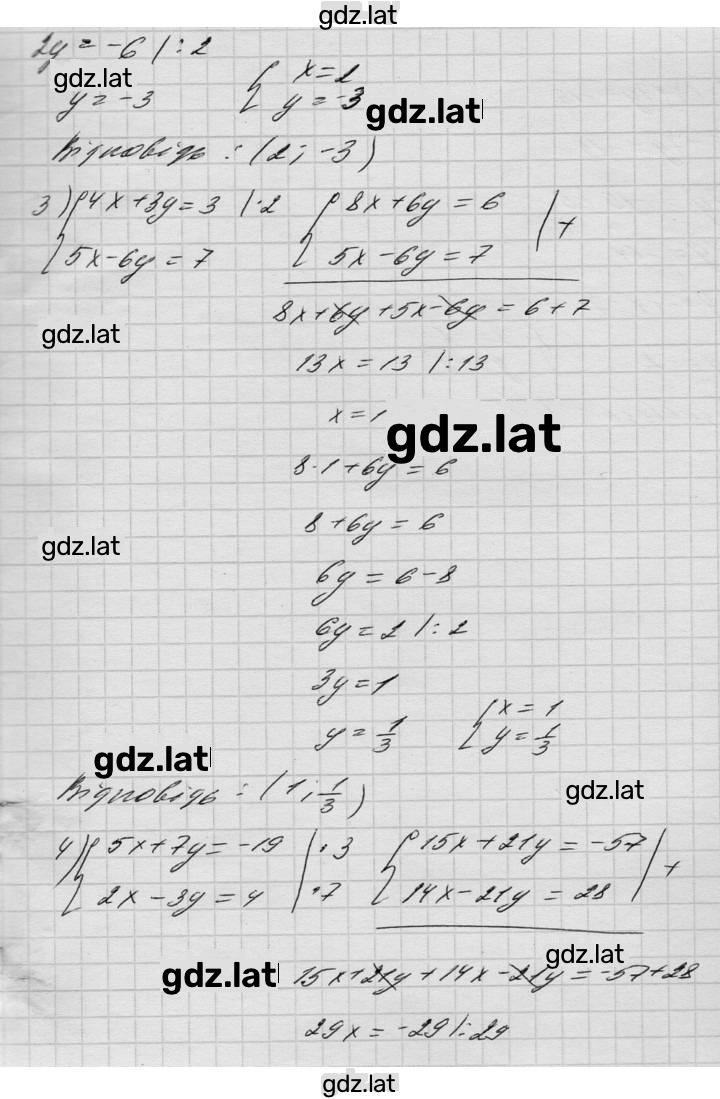 gdz.lat
2y = -6 |:2
gdz.lat
y = -3 { x=2
y = -3
gdz.lat
Відповідь: (2; -3)
3) { 4x+3y=3 |·2 { 8x+6y=6 | +
5x-6y=7 5x-6y=7
8x+6y+5x-6y=6+7
gdz.lat
13x=13 |:13
x=1
gdz.lat
8·1+6y=6
8+6y=6
gdz.lat
6y=6-8
6y=2 |:2
3y=1
y=1/3 { x=1
y=1/3
gdz.lat
Відповідь: (1; 1/3)
gdz.lat
4) { 5x+7y=-19 |·3 { 15x+21y=-57 | +
2x-3y=4 |·7 14x-21y=28
gdz.lat
gdz.lat
15x+21y+14x-21y=-57+28
29x=-29 |:29
gdz.lat